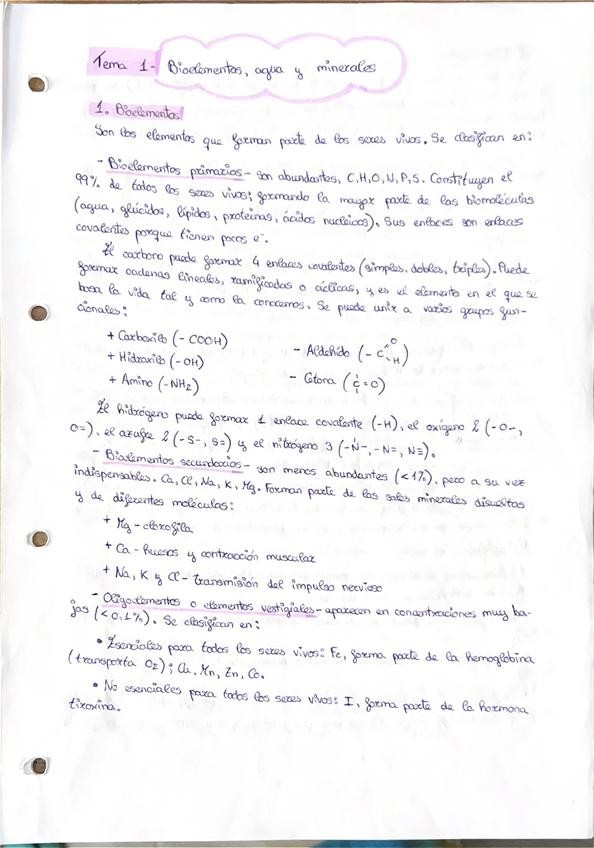 Tema 1- Bioelementos, agua y minerales
1. Bioelementos
Son los elementos que forman parte de los seres vivos. Se clasifican en:
- Bioelementos primarios - son abundantes, C,H,O,N,P,S. Constituyen el
99% de todos los seres vivos; formando la mayor parte de las biomoléculas
(agua, glúcidos, lípidos, proteínas, ácidos nucleicos). Sus enlaces son enlaces
covalentes porque tienen pocos e⁻.
El carbono puede formar 4 enlaces covalentes (simples, dobles, triples). Puede
formar cadenas lineales, ramificadas o cíclicas, y es el elemento en el que se
basa la vida tal y como la conocemos. Se puede unir a varios grupos fun-
cionales:
+ Carboxilo (-COOH)
+ Hidroxilo (-OH)
+ Amino (-NH₂)
- Aldehído (-C=O -H)
- Cetona (C=O)
El hidrógeno puede formar 1 enlace covalente (-H), el oxígeno 2 (-O-,
O=), el azufre 2 (-S-, S=) y el nitrógeno 3 (-N-, -N=, N≡).
- Bioelementos secundarios - son menos abundantes (<1%), pero a su vez
indispensables. Ca, Cl, Na, K, Mg. Forman parte de las sales minerales disueltas
y de diferentes moléculas:
+ Mg - clorofila
+ Ca - huesos y contracción muscular
+ Na, K y Cl - transmisión del impulso nervioso
- Oligoelementos o elementos vestigiales - aparecen en concentraciones muy ba-
jas (<0,1%). Se clasifican en:
• Esenciales para todos los seres vivos: Fe, forma parte de la hemoglobina
(transporta O₂); Cu, Mn, Zn, Co.
• No esenciales para todos los seres vivos: I, forma parte de la hormona
tiroxina.